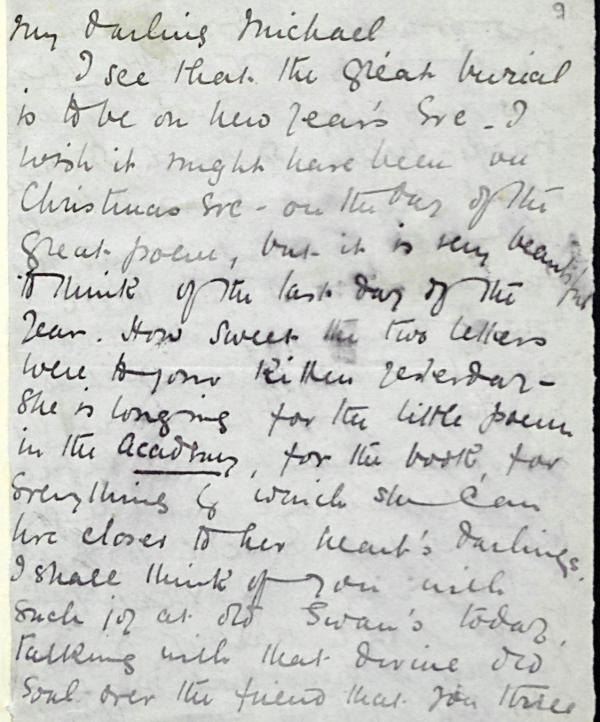 9
My darling Michael
I see that the great burial
is to be on New Year's Eve - I
wish it might have been on
Christmas Eve - on the day of the
great poem, but it is very beautiful
to think of the last day of the
Year. How sweet the two letters
were to your Kitten yesterday -
She is longing for the little poem
in the Academy, for the book, for
Everything by which she can
live closer to her heart's darlings.
I shall think of you with
Such joy at old Swan's today,
talking with that divine old
Soul over the friend that you three